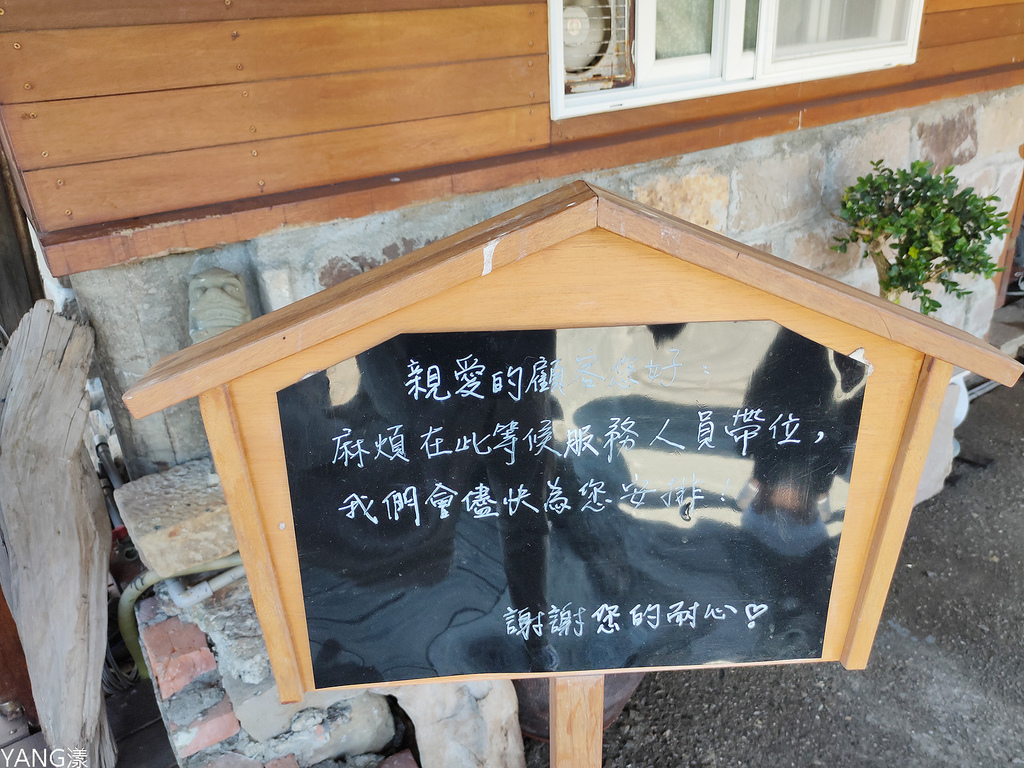 親愛的顧客您好：
麻煩在此等候服務人員帶位，
我們會儘快為您安排！
謝謝您的耐心♡
YANG漾